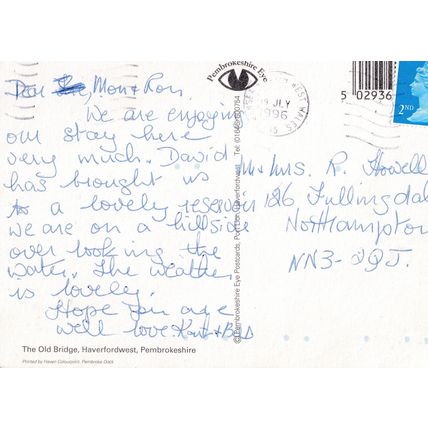 Dear Mon & Ron,
We are enjoying
our stay here
very much. David
has brought us
to a lovely reservoir
we are on a hillside
over looking the
water. The weather
is lovely.
Hope you are
well love
The Old Bridge, Haverfordwest, Pembrokeshire
Printed by Haven Colourprint, Pembroke Dock
Pembrokeshire Eye
©Pembrokeshire Eye Postcards, Haverfordwest, Pembrokeshire. Tel:
WEST WALES
JLY
1996
5 02936
2ND
Mr & Mrs. R. Howell
126 Fullingdale
Northampton
NN3-2QJ.